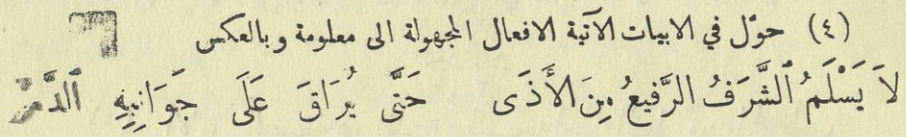 (٤) حوّل في الابيات الآتية الافعال المجهولة الى معلومة وبالعكس
لَا يَسْلَمُ ٱلشَّرَفُ الرَّفيعُ مِنَ الأَذَى حَتَّى يُرَاقَ عَلَى جَوَانِبِهِ ٱلدَّمُ